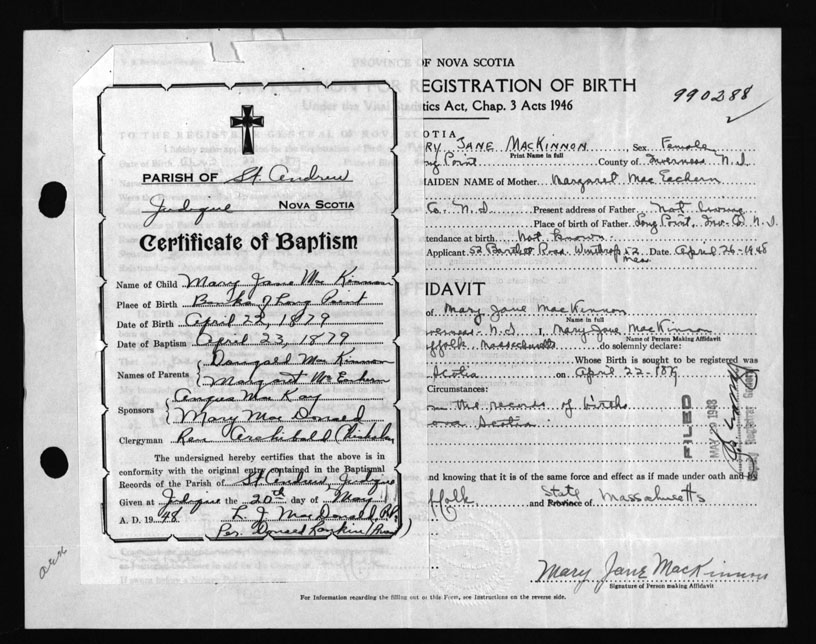 PARISH OF St Andrew
Judique NOVA SCOTIA
Certificate of Baptism
Name of Child Mary Jane Mac Kinnon
Place of Birth Banks of Long Point
Date of Birth April 22, 1879
Date of Baptism April 23, 1879
Names of Parents Dougald Mac Kinnon
Margaret McEachern
Sponsors Angus Mac Kay
Mary Mac Donald
Clergyman Rev Archibald Chisholm
The undersigned hereby certifies that the above is in
conformity with the original entry contained in the Baptismal
Records of the Parish of St Andrew, Judique
Given at Judique the 20th day of May
A. D. 19 48 L. J. MacDonald, P.P.
Per. Donald Rankin
PROVINCE OF NOVA SCOTIA
REGISTRATION OF BIRTH
tics Act, Chap. 3 Acts 1946
990288
OTIA
RY JANE MACKINNON, Sex Female
Print Name in full
ng Point County of Inverness N.S.
MAIDEN NAME of Mother Margaret Mac Eachern
Co. N.S. Present address of Father Not living
Place of birth of Father Long Point, Inv. Co. N.S.
tendance at birth Not Known
Applicant 52 Bartlett Road, Winthrop 52 Mass Date April 26-1948
IDAVIT
of Mary Jane MacKinnon
Name in full
verness N.S. I, Mary Jane MacKinnon
Name of Person Making Affidavit
ffolk Massachusetts do solemnly declare:
Whose Birth is sought to be registered was
Scotia on April 22-1879
Circumstances:
om the records of births
ova Scotia
FILED
MAY 29 1948
and knowing that it is of the same force and effect as if made under oath and by
ffolk State and Province of Massachusetts
Mary Jane MacKinnon
Signature of Person making Affidavit
For Information regarding the filling out of this Form, see Instructions on the reverse side.